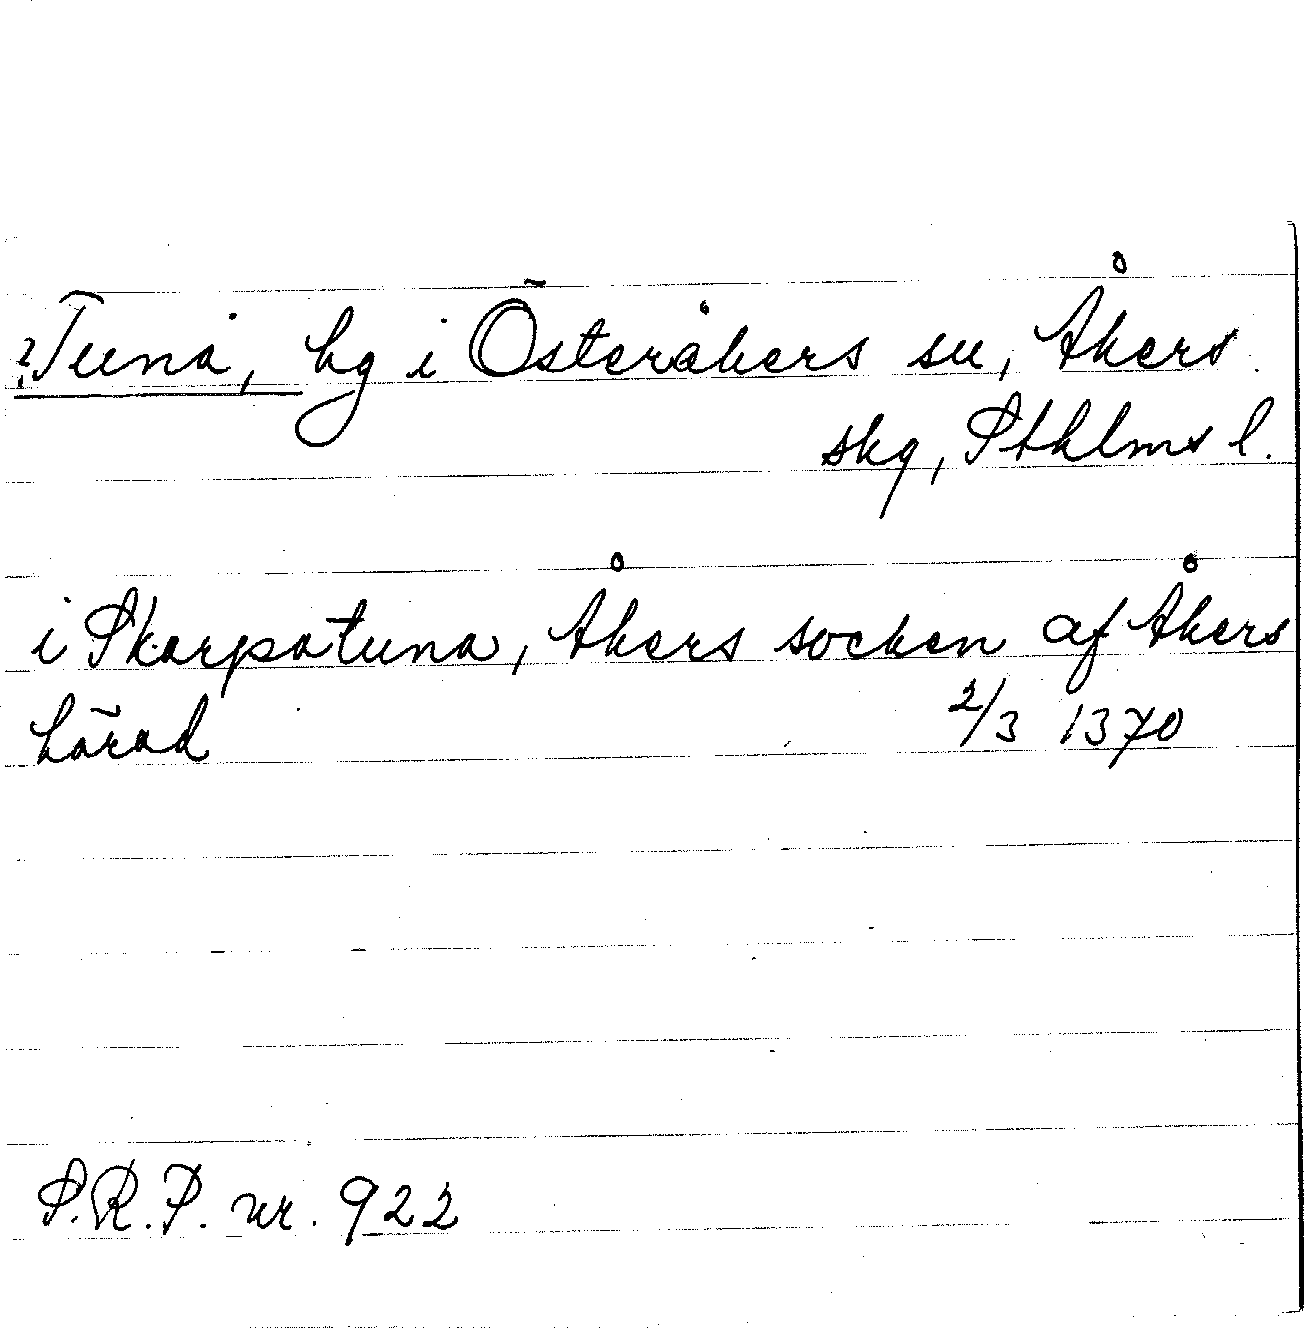 ?Tuna, hg i Österåkers sn, Åkers
skg, Sthlms l.
i Skarpatuna, Åkers socken af Åkers
härad 2/3 1370
S.R.P. nr. 922